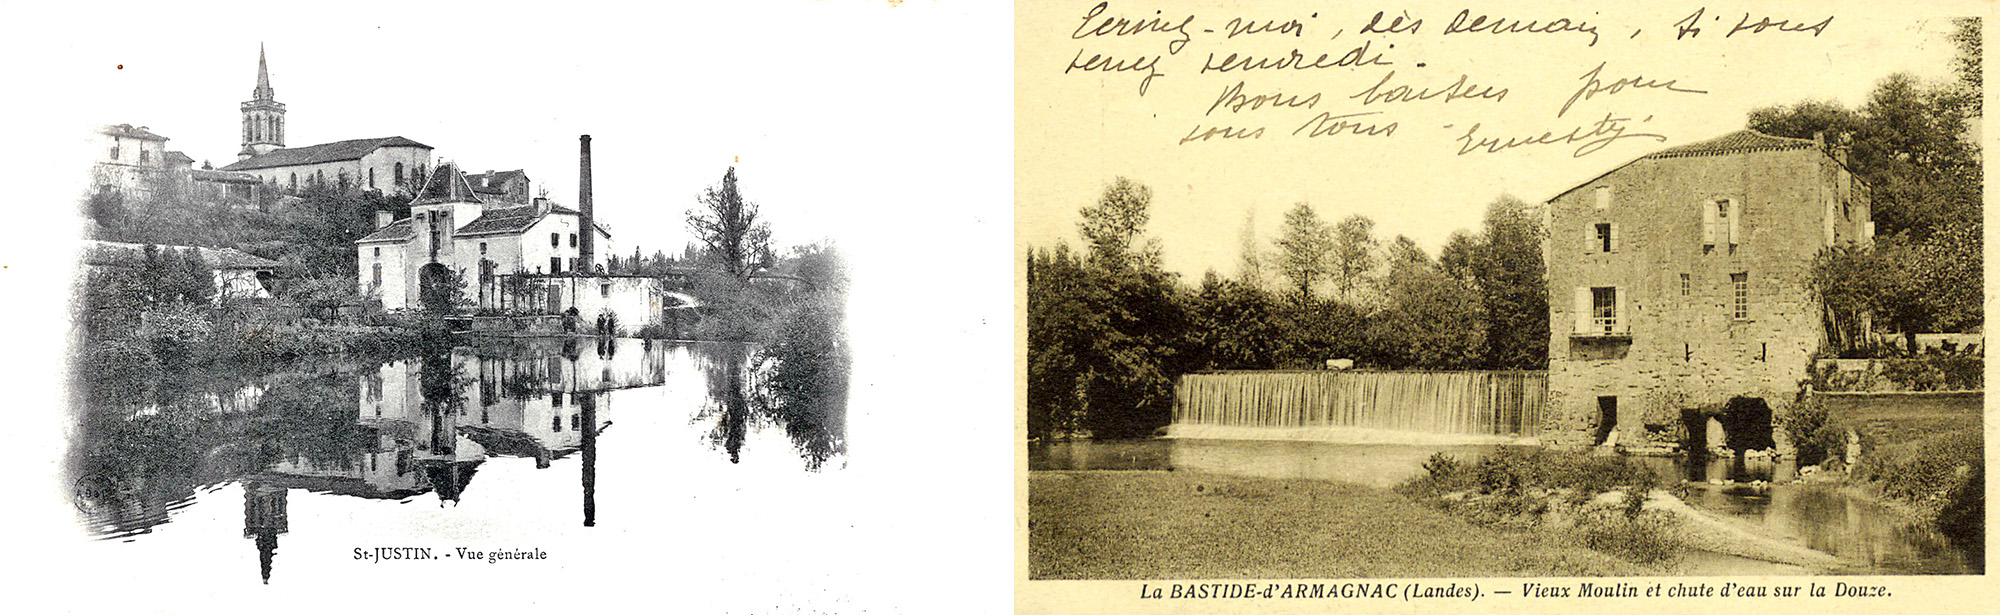 St-JUSTIN. - Vue générale
Ecrivez-moi, dès demain, si vous
venez vendredi.
Bons baisers pour
vous tous
La BASTIDE-d'ARMAGNAC (Landes). — Vieux Moulin et chute d'eau sur la Douze.